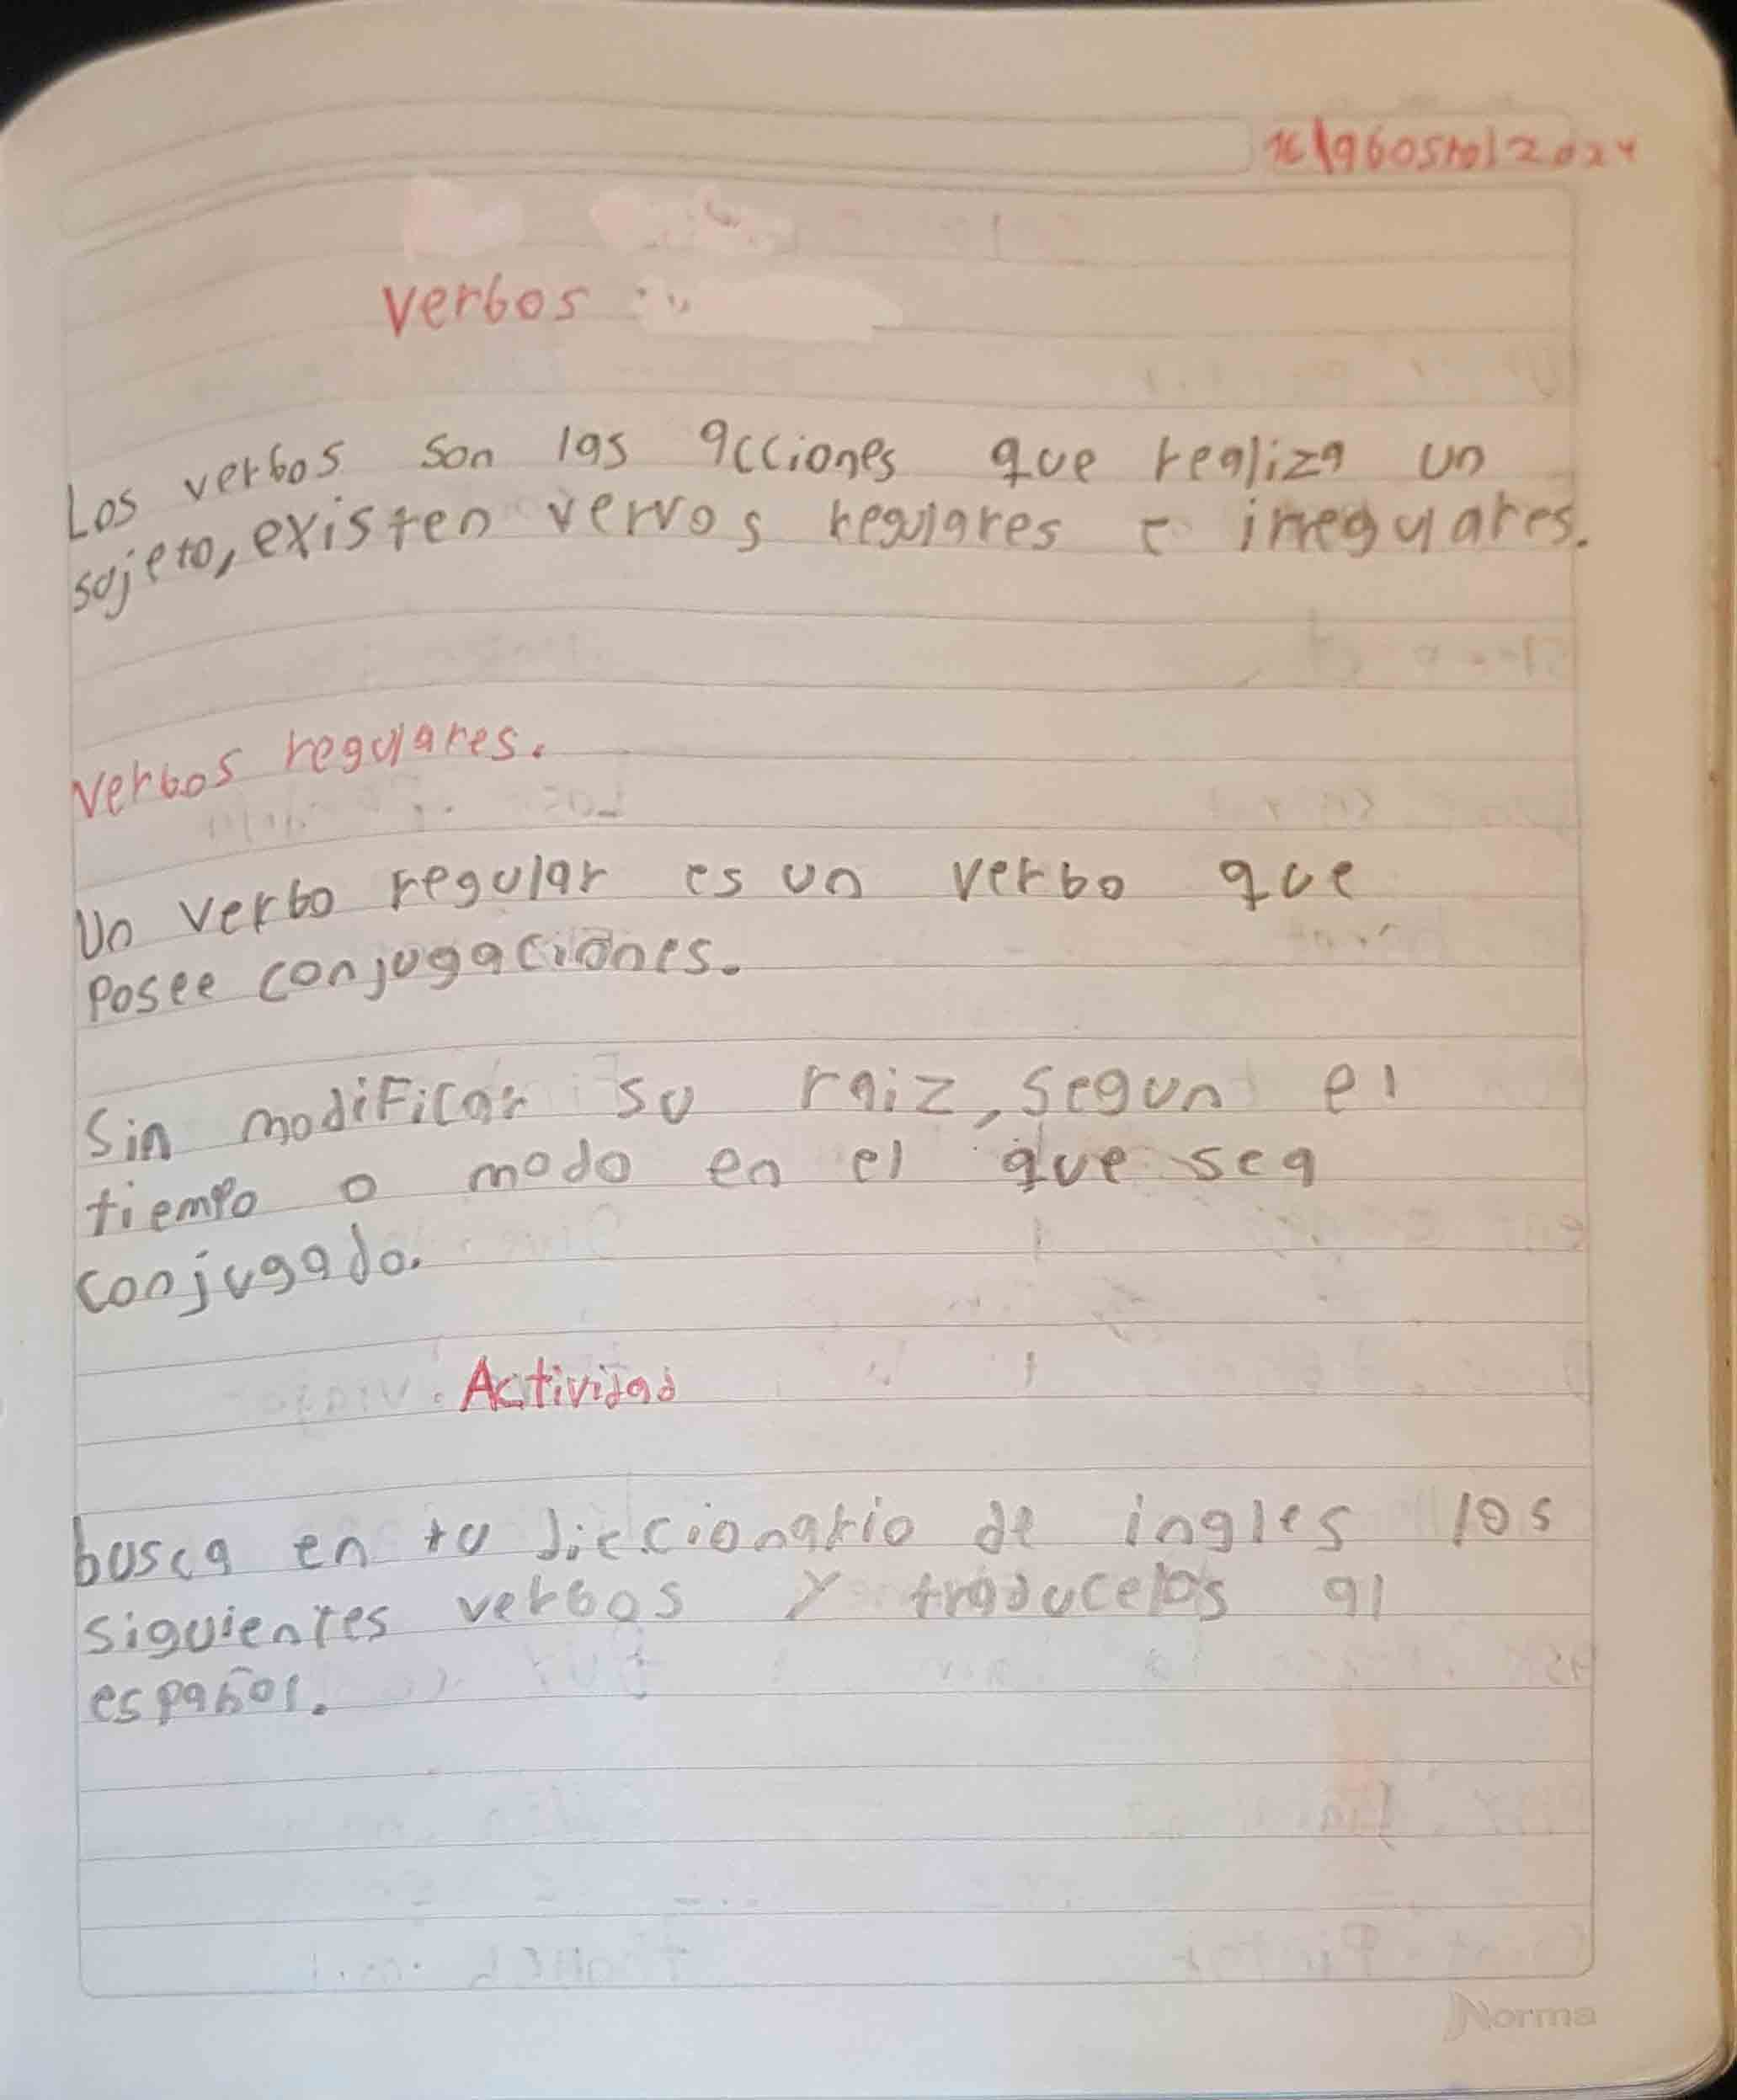 16/agosto/2024
verbos
Los verbos son las acciones que realiza un
sujeto, existen vervos regulares e irregulares.
verbos regulares.
Un verbo regular es un verbo que
posee conjugaciones.
Sin modificar su raiz, segun el
tiempo o modo en el que sea
conjugado.
Actividad
busca en tu diccionario de ingles los
siguientes verbos y traducelos al
español.
Norma